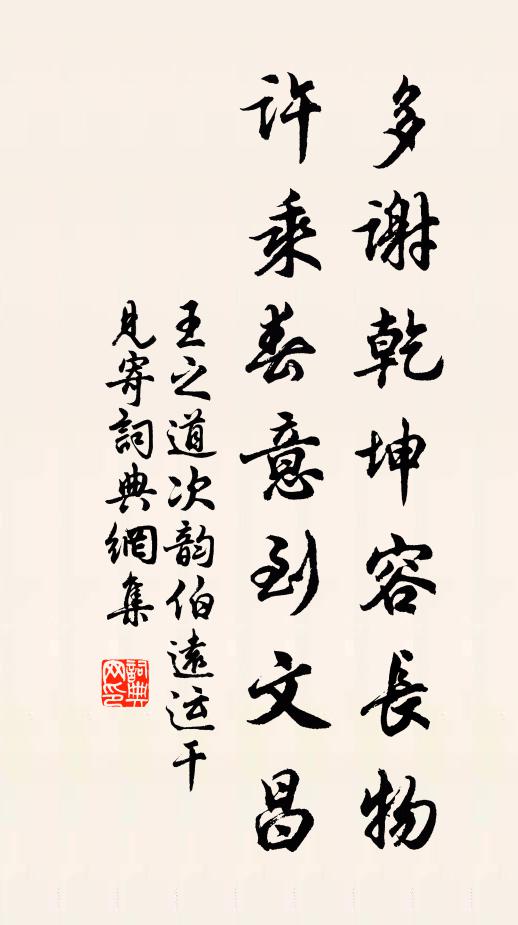 多谢乾坤容長物
许乘春意到文昌
王之道次韵伯遠运干
見寄詞典網集
詞典网印